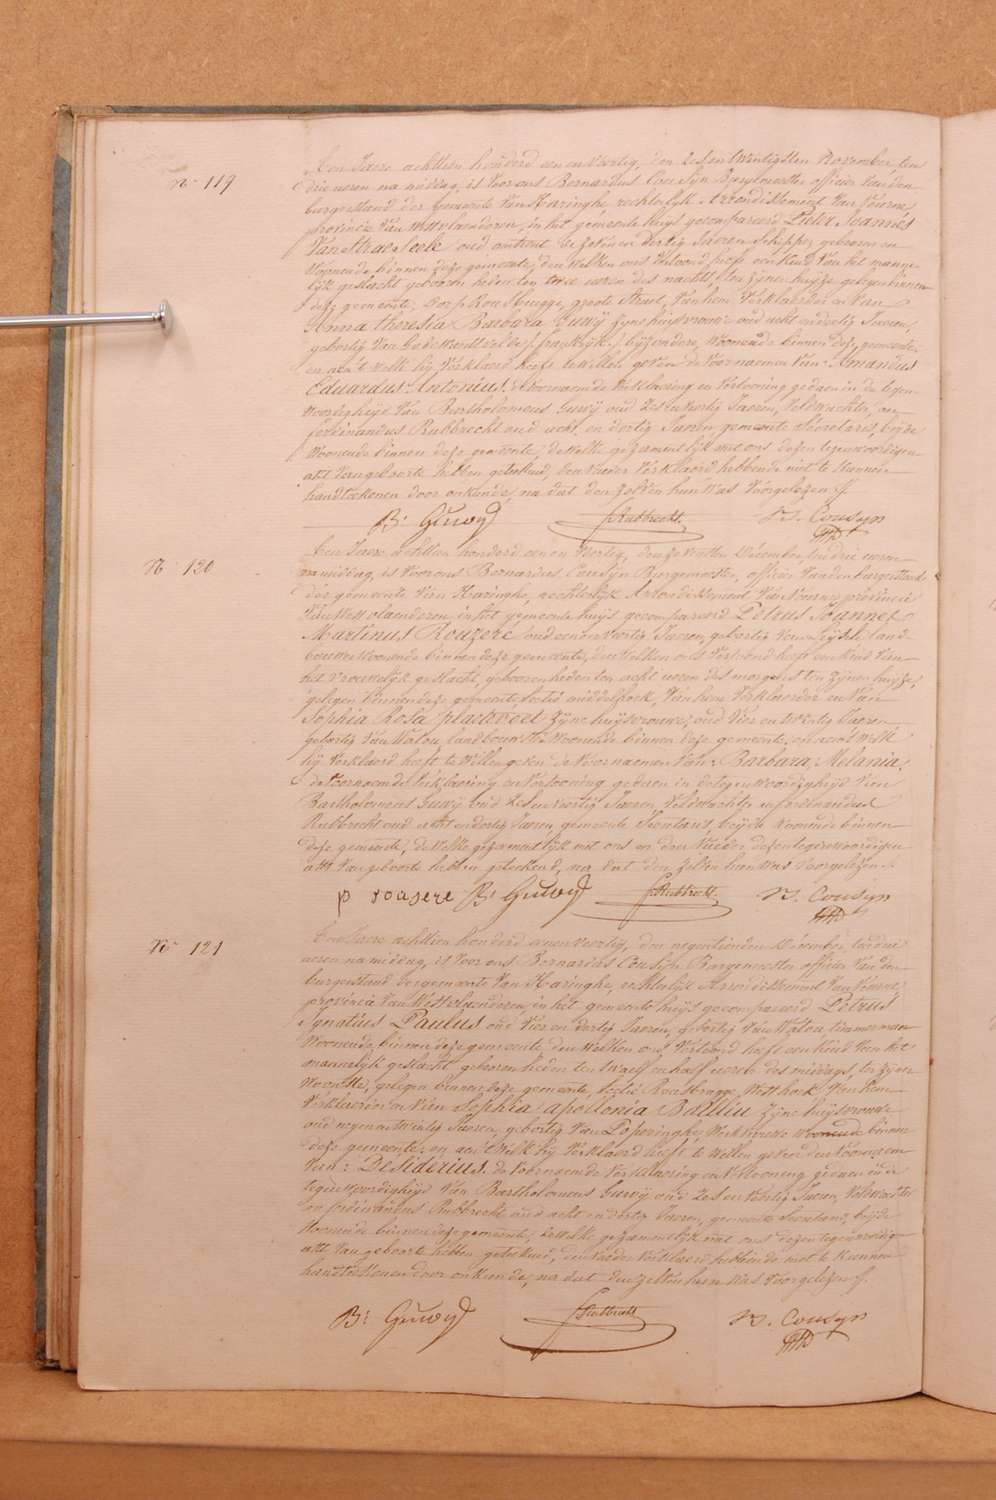 N° 119
Den Jaere achttien honderd een en veertig, den zes en twintigsten November, ten
drie uren na middag, is voor ons Bernardus Cousijn Burgemeester officier van den
burgerstand der gemeente van Haringhe rechterlijk Arrondissement van Veurne
provincie van Westvlaenderen, in het gemeente huys gecompareerd Pieter Joannes
Van Straeseele oud omtrent en dertig Jaeren, geboren en
woonende binnen deze gemeente, den welken ons vertoond heeft een kind van het manne-
lijk geslacht geboren heden ten twee uren des nachts, ten zijnen huyze gelegen binnen
deze gemeente, Rousbrugge, groote Straet, van hem verklaerder en van
Anna theresia Barbara Guwij zijne huijsvrouw oud acht en dertig Jaeren,
gebortig van frankrijk, bijzondere, woonende binnen deze gemeente,
en aen 't welk hij verklaerd heeft te willen geven de voornaemen van: Amandus
Eduardus Antonius. de voornoemde verklaering en vertooning gedaen in de tegen-
woordigheyd van Bartholomeus Guwij oud zes en veertig Jaeren, veldwachter, en
ferdinandus Rubbrecht oud acht en dertig Jaeren, gemeente Secretaris, beyde
woonende binnen deze gemeente, de welke gezamentlijk met ons dezen tegenwoordigen
akt van geboorte hebben geteekend, den vaeder verklaerd hebbende niet te kunnen
handteekenen door onkunde, na dat den zelven hun was voorgelezen.
B: Guwy Rubbrecht B. Cousyn
N° 120
Den Jaere achttien honderd een en veertig, den December ten drie uren
na middag, is voor ons Bernardus Cousijn Burgemeester, officier van den burgerstand
der gemeente van Haringhe, rechterlijk Arrondissement van Veurne provincie
van Westvlaenderen, in het gemeente huijs gecompareerd Petrus Joannes
Martinus Rouzere oud een en veertig Jaeren, gebortig van land-
bouwer woonende binnen deze gemeente, den welken ons vertoond heeft een kind van
het vrouwelijk geslacht, geboren heden ten acht uren des morgens ten zijnen huyze,
gelegen binnen deze gemeente sectie middelhoek, van hem verklaerder en van
Sophia Rosa plaetevoet zijne huijsvrouwe, oud vier en twintig Jaeren
gebortig van Watou, landbouwster woonende binnen deze gemeente, en aen 't welk
hij verklaerd heeft te willen geven de voornaemen van: Barbara, Melania.
de voornoemde verklaering en vertooning gedaen in de tegenwoordigheyd van
Bartholomeus Guwij oud zes en veertig Jaeren, veldwachter en ferdinandus
Rubbrecht oud acht en dertig Jaeren, gemeente Secretaris, beyde woonende binnen
deze gemeente, de welke gezamentlijk met ons en den vaeder dezen tegenwoordigen
akt van geboorte hebben geteekend, na dat den zelven hun was voorgelezen.
p roasere B: Guwy Rubbrecht B. Cousyn
N° 121
Den Jaere achttien honderd een en veertig, den negentienden December, ten drie
uren na middag, is voor ons Bernardus Cousijn Burgemeester officier van den
burgerstand der gemeente van Haringhe, rechterlijk Arrondissement van Veurne,
provincie van Westvlaenderen, in het gemeente huijs gecompareerd Petrus
Ignatius Paulus oud vier en dertig Jaeren, gebortig van Watou timmerman
woonende binnen deze gemeente, den welken ons vertoond heeft een kind van het
mannelijk geslacht, geboren heden ten twaelf en half uren des middags, ten zijner
woonste, gelegen binnen deze gemeente, sectie Rousbrugge, Westhoek, van hem
verklaerder en van Sophia apollonia Baelliu zijne huijsvrouwe
oud negen en twintig Jaeren, gebortig van Poperinghe, woonende binnen
deze gemeente, en aen 't welk hij verklaerd heeft te willen geven den voornaem
van: Desiderius. de voornoemde verklaering en vertooning gedaen in de
tegenwoordigheyd van Bartholomeus Guwij oud zes en veertig Jaeren, veldwachter
en ferdinandus Rubbrecht oud acht en dertig Jaeren, gemeente Secretaris, beyde
woonende binnen deze gemeente, de welke gezamentlijk met ons dezen tegenwoordigen
akt van geboorte hebben geteekend, den vaeder verklaerd hebbende niet te kunnen
handteekenen door onkunde, na dat den zelven hun was voorgelezen.
B: Guwy Rubbrecht B. Cousyn